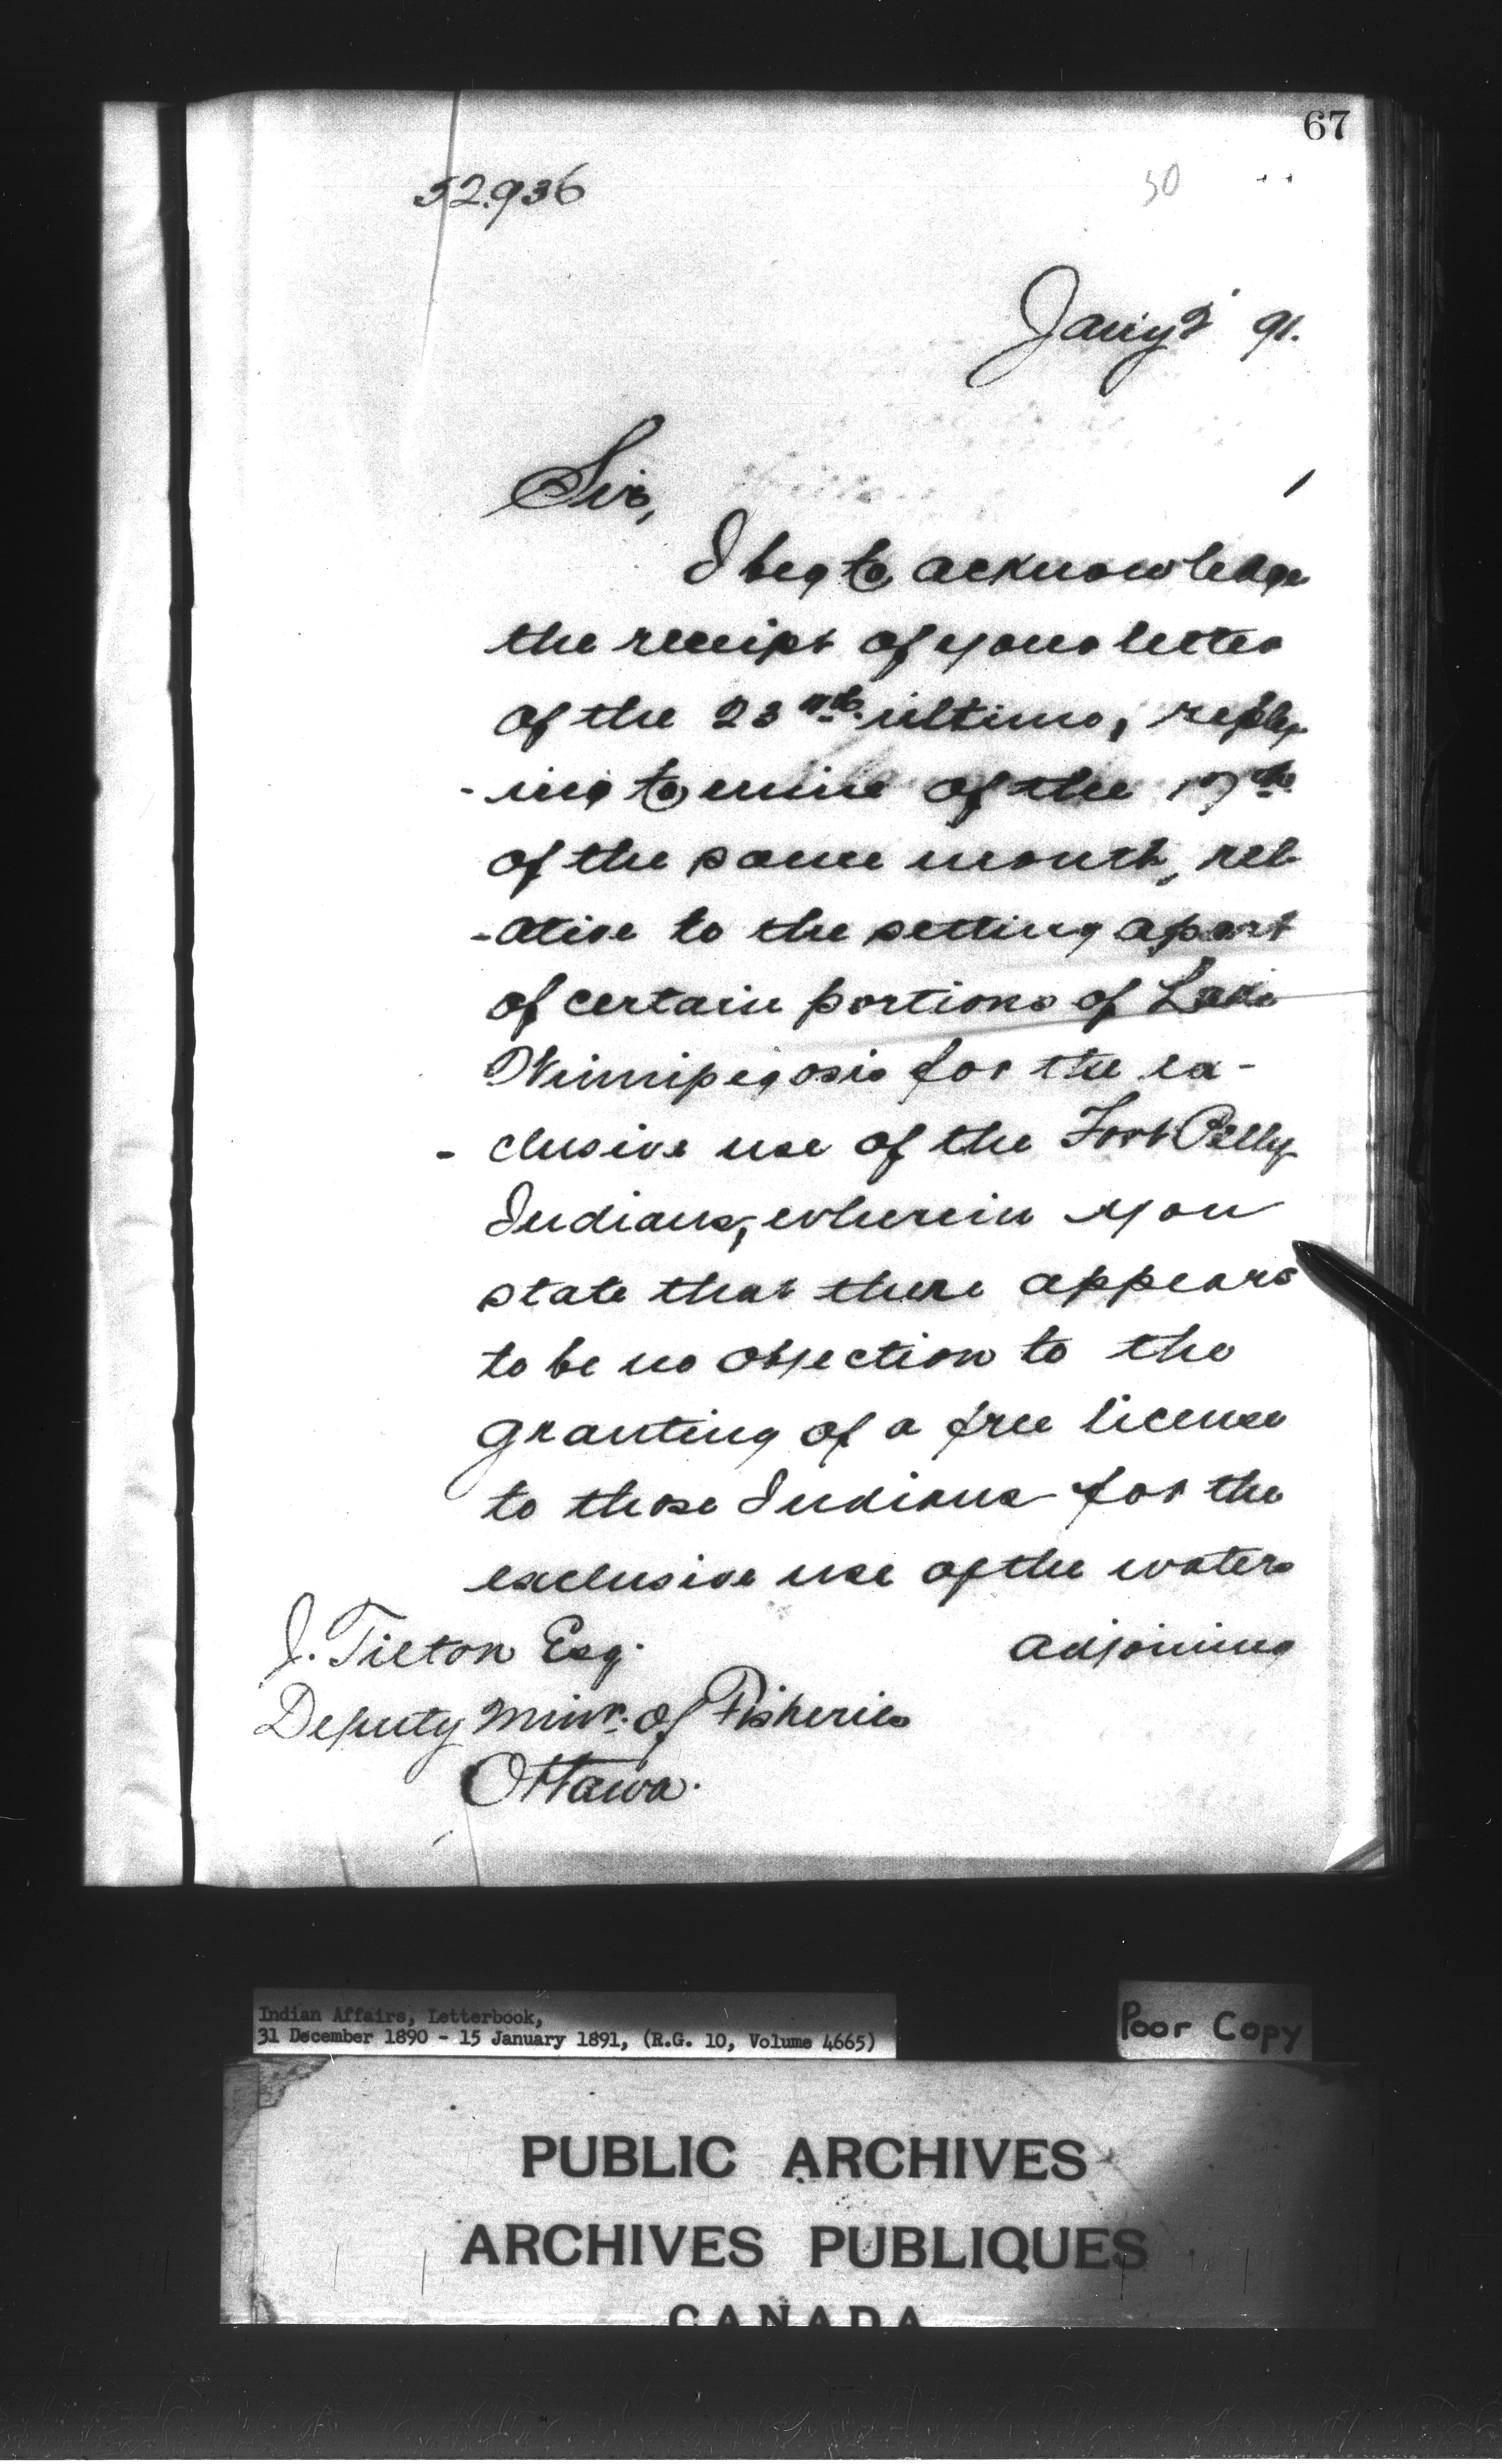 67
52.936
50
Jany 2 91.
Sir,
I beg to acknowledge
the receipt of your letter
of the 23rd ultimo, reply-
-ing to mine of the 17th
of the same month, rel-
-ative to the setting apart
of certain portions of Lake
Winnipegosis for the ex-
- clusive use of the Fort Pelly
Indians, wherein you
state that there appears
to be no objection to the
granting of a free license
to those Indians for the
exclusive use of the waters
adjoining
J. Tilton Esq.
Deputy Minr. of Fisheries
Ottawa.
Indian Affairs, Letterbook,
31 December 1890 - 15 January 1891, (R.G. 10, Volume 4665)
Poor Copy
PUBLIC ARCHIVES
ARCHIVES PUBLIQUES
CANADA